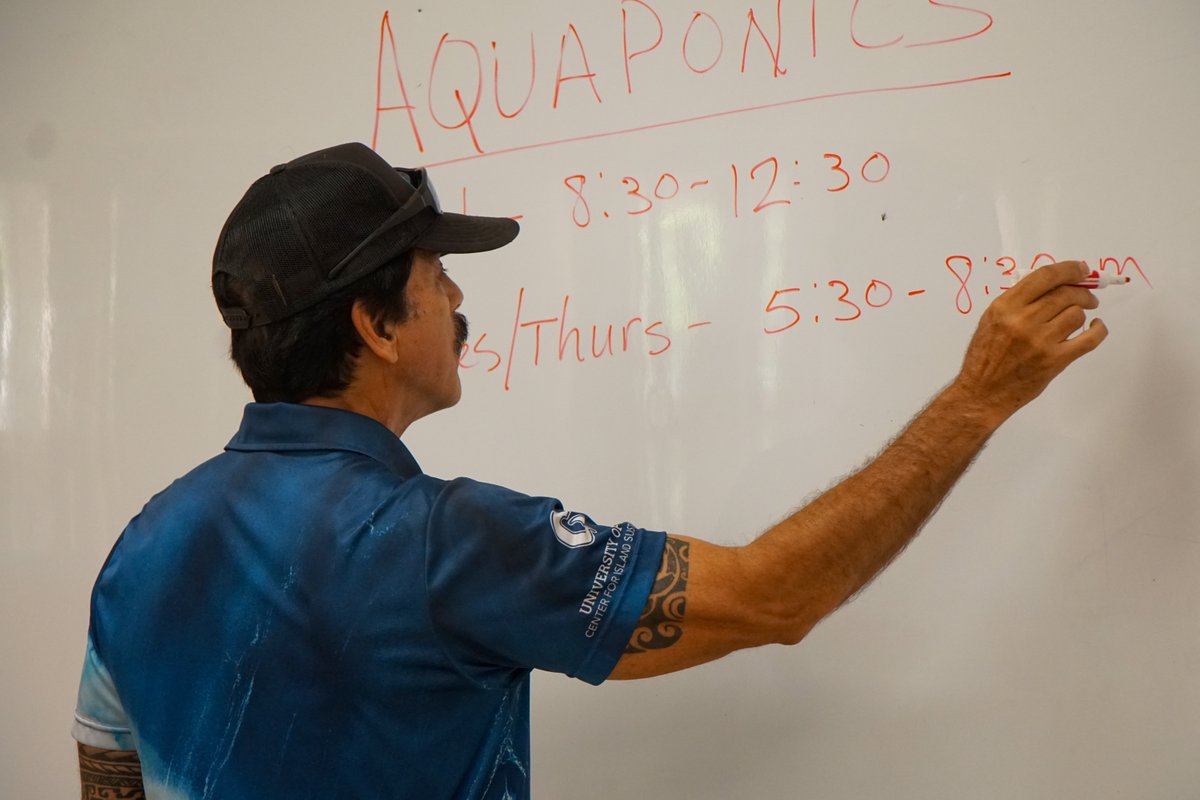 AQUAPONICS
- 8:30-12:30
es/Thurs- 5:30-8:30 m
UNIVERSITY OF
CENTER FOR ISLAND SUS